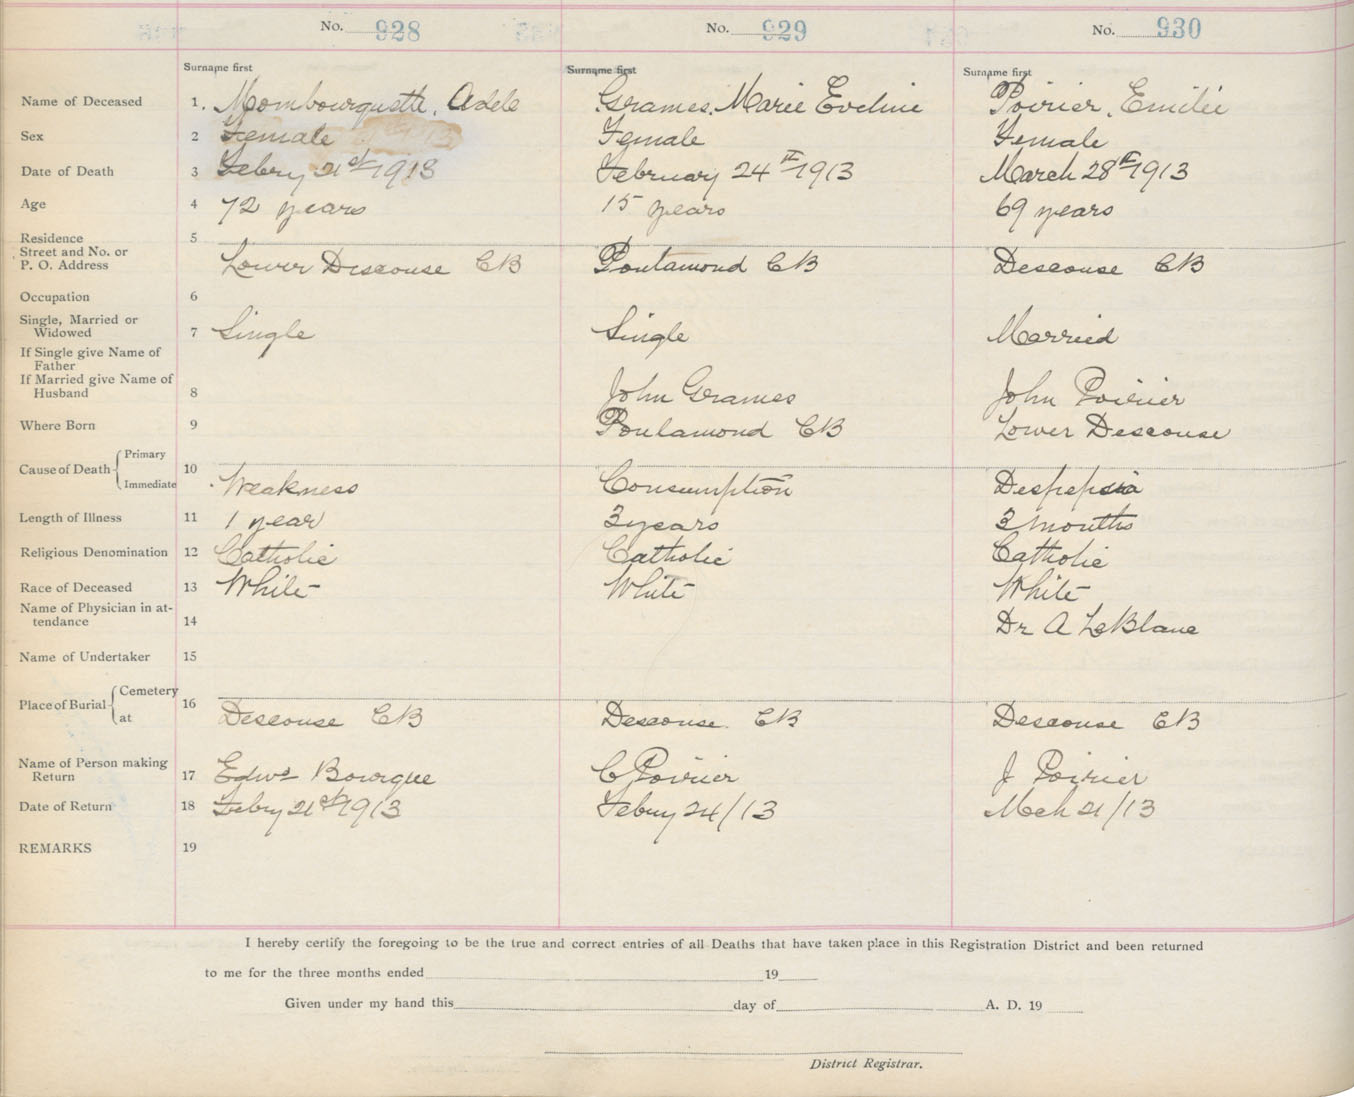 No. 928 No. 929 No. 930
Surname first Surname first Surname first
Name of Deceased 1. Mombourquette, Adele Grames, Marie Eveline Poirier, Emilie
Sex 2 Female Female Female
Date of Death 3 Febry 21st 1913 February 24th 1913 March 28th 1913
Age 4 72 years 15 years 69 years
Residence 5
Street and No. or
P. O. Address Lower Descouse CB Poulamond CB Descouse CB
Occupation 6
Single, Married or
Widowed 7 Single Single Married
If Single give Name of
Father
If Married give Name of
Husband 8 John Grames John Poirier
Where Born 9 Poulamond CB Lower Descouse
Cause of Death Primary
Immediate 10 Weakness Consumption Despepsia
Length of Illness 11 1 year 3 years 3 months
Religious Denomination 12 Catholic Catholic Catholic
Race of Deceased 13 White White White
Name of Physician in at-
tendance 14 Dr A LeBlanc
Name of Undertaker 15
Place of Burial Cemetery
at 16 Descouse CB Descouse CB Descouse CB
Name of Person making
Return 17 Edwd Bourque C Poirier J Poirier
Date of Return 18 Febry 21st 1913 Febuy 24/13 Mch 21/13
REMARKS 19
I hereby certify the foregoing to be the true and correct entries of all Deaths that have taken place in this Registration District and been returned
to me for the three months ended 19
Given under my hand this day of A. D. 19
District Registrar.